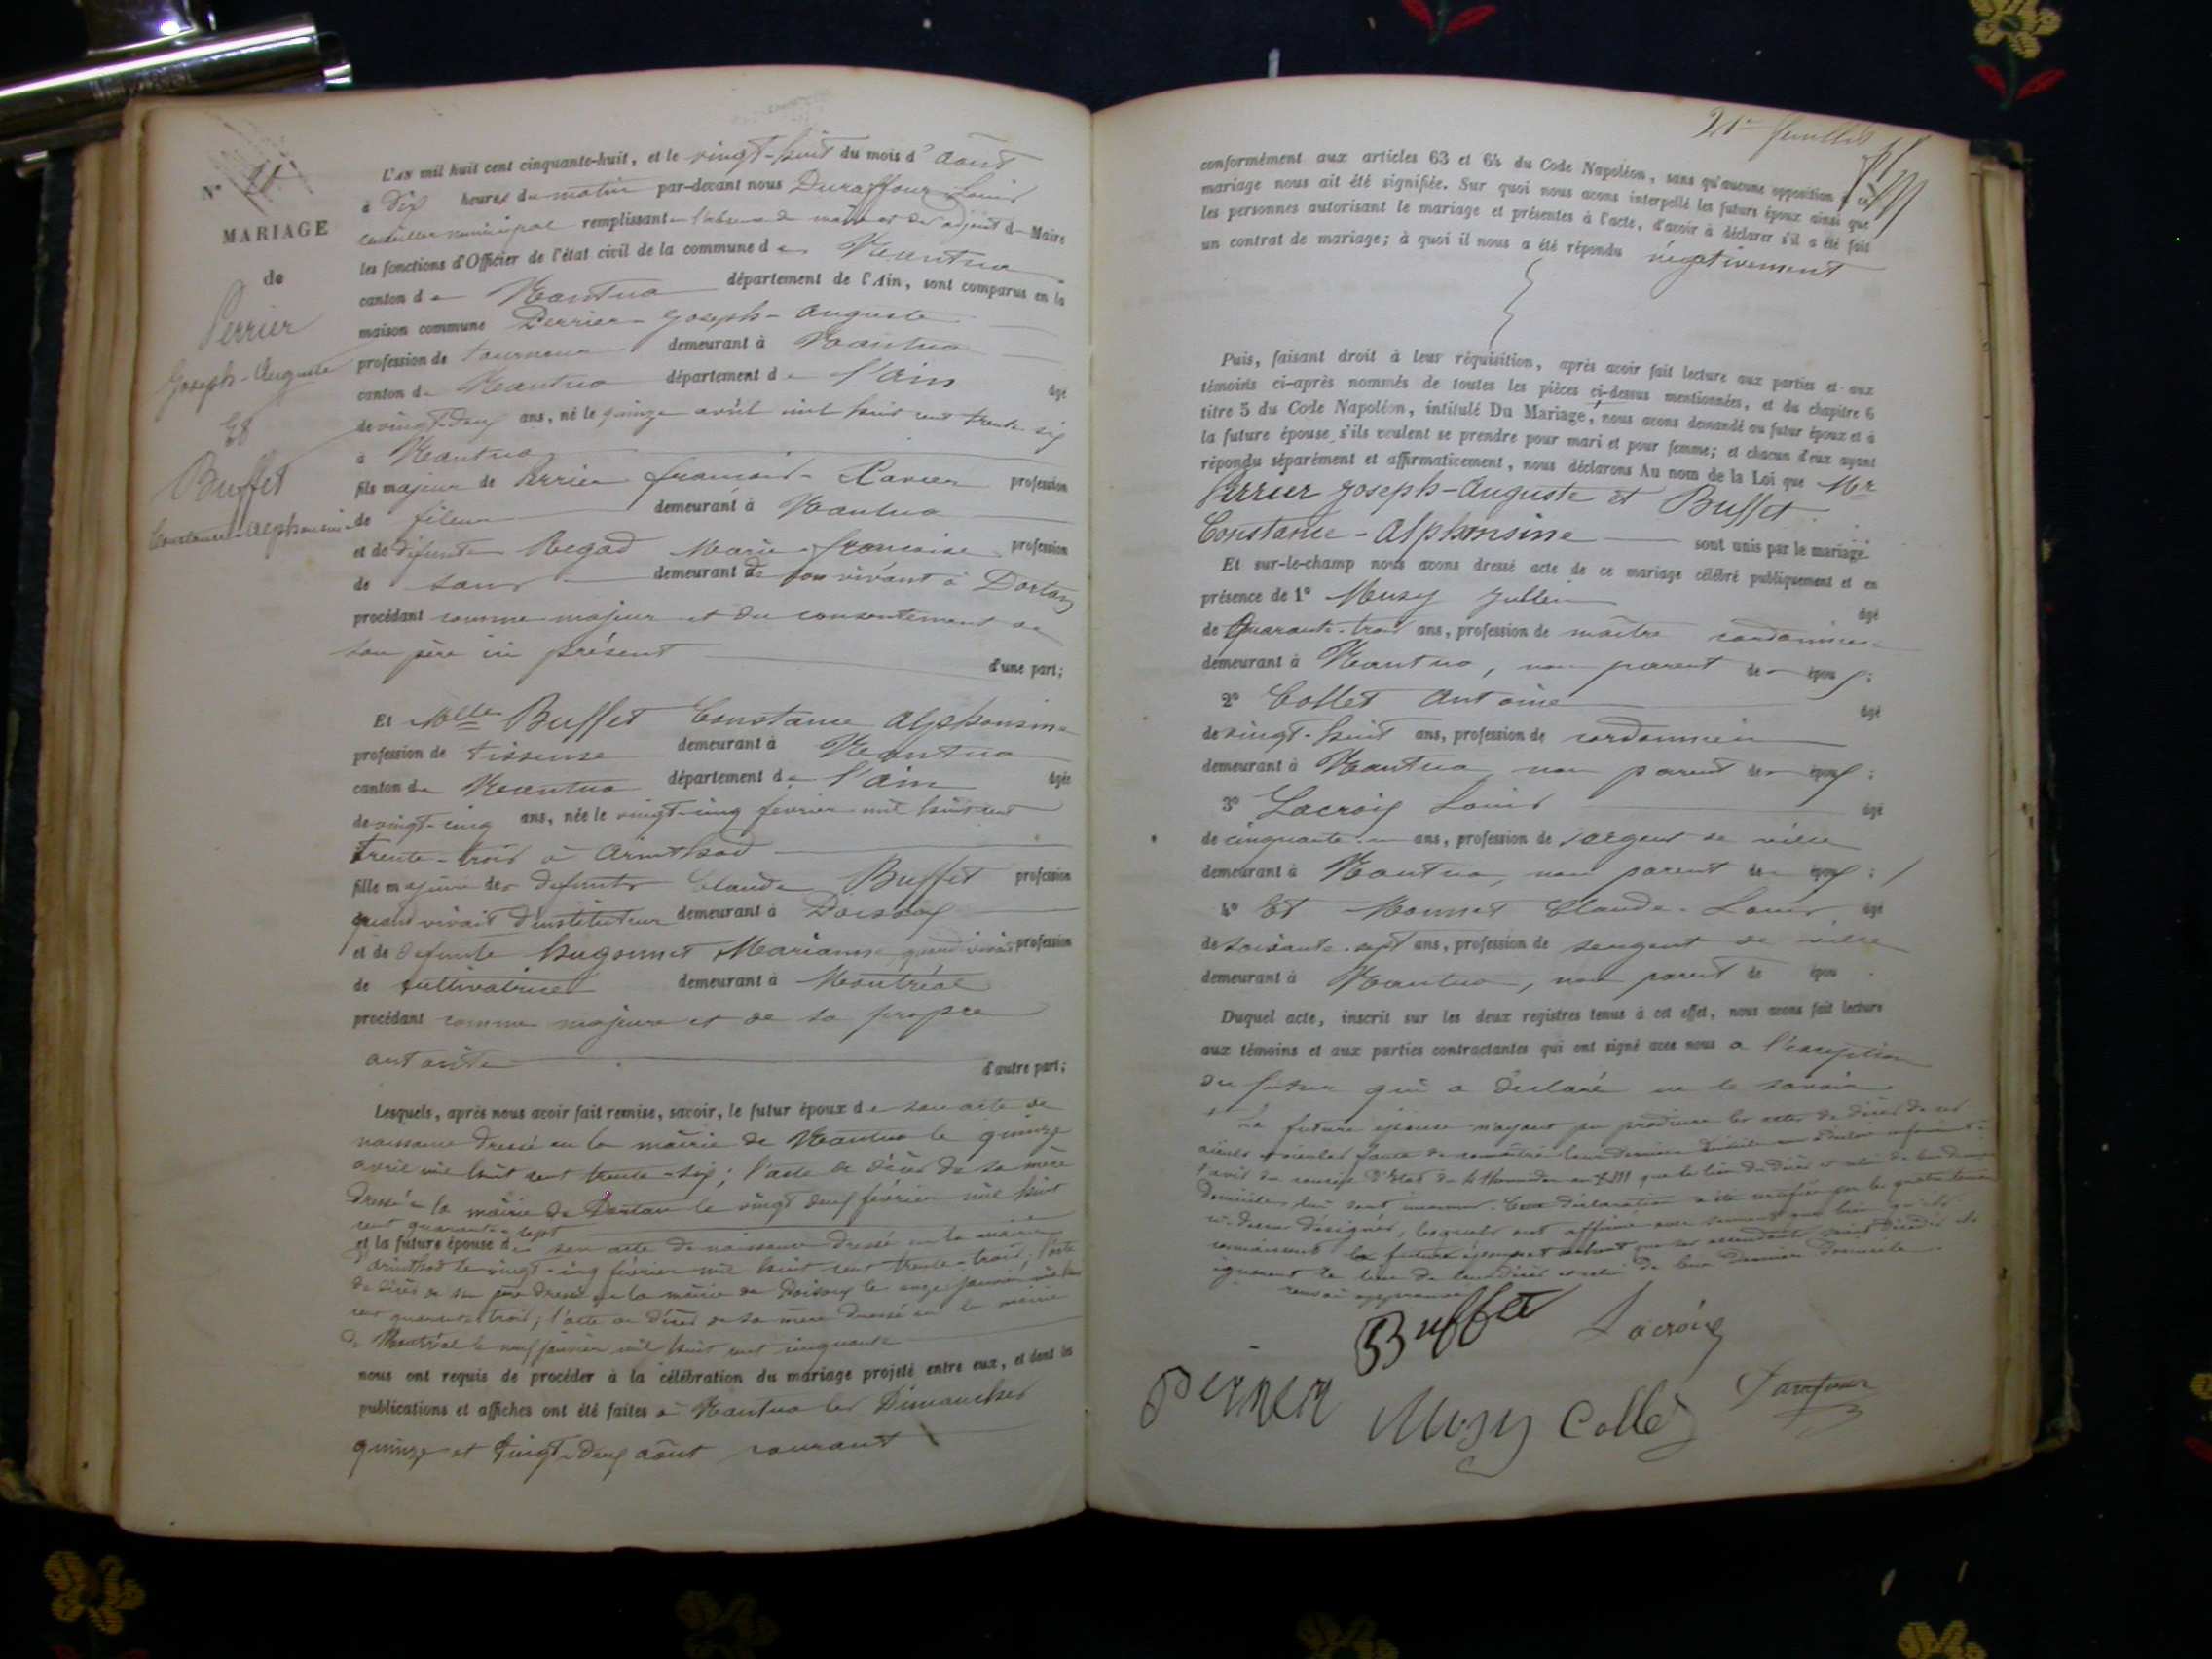 N° 21
MARIAGE
de
Perrier
Joseph-Auguste
Et
Buffet
Constance-Alphonsine
L'AN mil huit cent cinquante-huit, et le vingt-huit du mois d'août
à dix heures du matin par-devant nous Duraffour Louis
conseiller municipal remplissant en l'absence du maire et de adjoint d Maire
les fonctions d'Officier de l'état civil de la commune de Nantua
canton de Nantua département de l'Ain, sont comparus en la
maison commune Perrier Joseph-Auguste
profession de tourneur demeurant à Nantua
canton de Nantua département de l'Ain âgé
de vingt-deux ans, né le quinze avril mil huit cent trente six
à Nantua
fils majeur de Perrier françois-Xavier profession
de fileur demeurant à Nantua
et de défunte Regad Marie françoise profession
de sans demeurant de son vivant à Dortan
procédant comme majeur et du consentement de
son père ici présent d'une part;
Et Melle Buffet Constance Alphonsine
profession de tisseuse demeurant à Nantua
canton de Nantua département de l'Ain âgée
de vingt-cinq ans, née le vingt-cinq février mil huit cent
trente-trois à Arinthod
fille majeure des défunts Claude Buffet profession
quand vivait d'instituteur demeurant à Poisoux
et de défunte hugonnet Marianne quand vivait profession
de cultivatrice demeurant à Montréal
procédant comme majeure et de sa propre
autorité d'autre part;
Lesquels, après nous avoir fait remise, savoir, le futur époux de son acte de
naissance dressé en la mairie de Nantua le quinze
avril mil huit cent trente-six; l'acte de décès de sa mère
dressé à la mairie de Dortan le vingt deux février mil huit
cent quarante-sept
et la future épouse de son acte de naissance dressé en la mairie
d'arinthod le vingt-cinq février mil huit cent trente-trois; l'acte
de décès de son père dressé en la mairie de Poisoux le onze janvier mil huit
cent quarante trois; l'acte de décès de sa mère dressé en la mairie
de Montréal le neuf janvier mil huit cent cinquante
nous ont requis de procéder à la célébration du mariage projeté entre eux, et dont les
publications et affiches ont été faites à Nantua les Dimanches
quinze et vingt-deux août courant
21e feuillet
conformément aux articles 63 et 64 du Code Napoléon, sans qu'aucune opposition à ce
mariage nous ait été signifiée. Sur quoi nous avons interpellé les futurs époux ainsi que
les personnes autorisant le mariage et présentes à l'acte, d'avoir à déclarer s'il a été fait
un contrat de mariage; à quoi il nous a été répondu négativement
Puis, faisant droit à leur réquisition, après avoir fait lecture aux parties et aux
témoins ci-après nommés de toutes les pièces ci-dessus mentionnées, et du chapitre 6
titre 5 du Code Napoléon, intitulé Du Mariage, nous avons demandé au futur époux et à
la future épouse s'ils veulent se prendre pour mari et pour femme; et chacun d'eux ayant
répondu séparément et affirmativement, nous déclarons Au nom de la Loi que Mr
Perrier Joseph-Auguste et Buffet
Constance-Alphonsine sont unis par le mariage.
Et sur-le-champ nous avons dressé acte de ce mariage célébré publiquement et en
présence de 1° Musy Jullien âgé
de Quarante-trois ans, profession de maître cordonnier
demeurant à Nantua, non parent des époux;
2° Collet Antoine âgé
de vingt-huit ans, profession de cordonnier
demeurant à Nantua non parent des époux;
3° Lacroix Louis âgé
de cinquante-un ans, profession de sergent de ville
demeurant à Nantua, non parent des époux;
4° Et Monnet Claude-Louis âgé
de soixante-sept ans, profession de sergent de ville
demeurant à Nantua, non parent de épou
Duquel acte, inscrit sur les deux registres tenus à cet effet, nous avons fait lecture
aux témoins et aux parties contractantes qui ont signé avec nous a l'exception
du futur qui a déclaré ne le savoir.
La future épouse n'ayant pu produire les actes de décès de ses
aïeuls et aieules faute de connaître leur dernier domicile a déclaré conformément à
l'avis du conseil d'Etat du 4 thermidor an XIII que le lieu du décès et celui de leur dernier
domicile lui sont inconnus. Cette déclaration a été certifiée par les quatre témoins
ci-dessus désignés, lesquels ont affirmé avec serment que bien qu'ils
connaissent la future épouse et que ses ascendants sont décédés ils
ignorent le lieu de leur décès et celui de leur dernier domicile.
renvoi approuvé
Buffet Lacroix
Perrier Musy Collet Duraffour